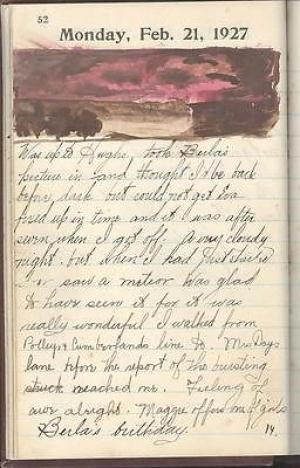 52
Monday, Feb. 21, 1927
Was up to Hughs, took Berla's
picture in and thought I'd be back
before dark but could not get
fixed up in time and it was after
seven when I got off. A very cloudy
night but when I had just
I saw a meteor was glad
to have seen it for it was
really wonderful I walked from
Polleys & Cumberlands line to Mrs Days
lane before the report of the bursting
struck reached me. Feeling of
awe alright. Maggie
Berla's birthday. 14.